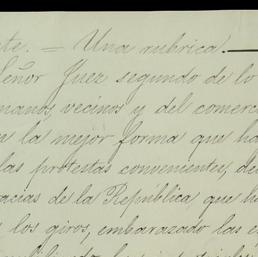 te. — Una rubrica. —
Señor Juez segundo de lo
manos, vecinos y del comerc
n la mejor forma que ha
las protestas convenientes, de
acias de la República, que ha
los giros, embarazado las e